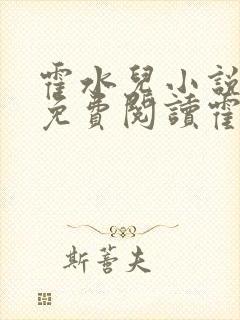 霍水兒小說
免費閱讀霍
斯蕾夫